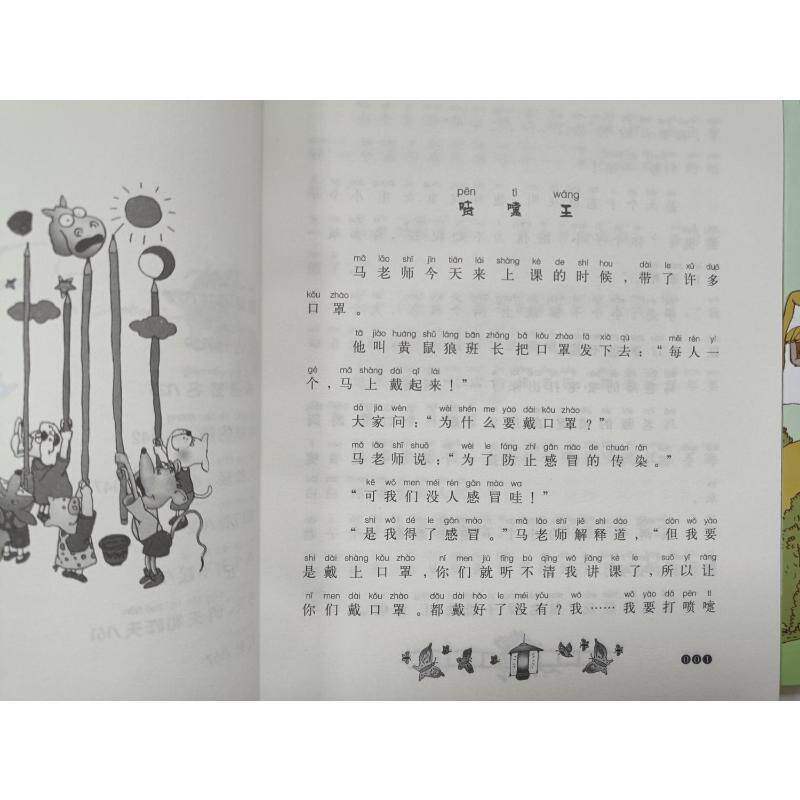 pēn tì wáng
喷嚏王
mǎ lǎo shī jīn tiān lái shàng kè de shí hou dài le xǔ duō
马老师今天来上课的时候，带了许多
kǒu zhào
口罩。
tā jiào huáng shǔ láng bān zhǎng bǎ kǒu zhào fā xià qù měi rén yí
他叫黄鼠狼班长把口罩发下去：“每人一
gè mǎ shàng dài qǐ lái
个，马上戴起来！”
dà jiā wèn wèi shén me yào dài kǒu zhào
大家问：“为什么要戴口罩？”
mǎ lǎo shī shuō wèi le fáng zhǐ gǎn mào de chuán rǎn
马老师说：“为了防止感冒的传染。”
kě wǒ men méi rén gǎn mào wa
“可我们没人感冒哇！”
shì wǒ dé le gǎn mào mǎ lǎo shī jiě shì dào dàn wǒ yào
“是我得了感冒。”马老师解释道，“但我要
shì dài shàng kǒu zhào nǐ men jiù tīng bù qīng wǒ jiǎng kè le suǒ yǐ ràng
是戴上口罩，你们就听不清我讲课了，所以让
nǐ men dài kǒu zhào dōu dài hǎo le méi yǒu wǒ wǒ yào dǎ pēn tì
你们戴口罩。都戴好了没有？我……我要打喷嚏
001